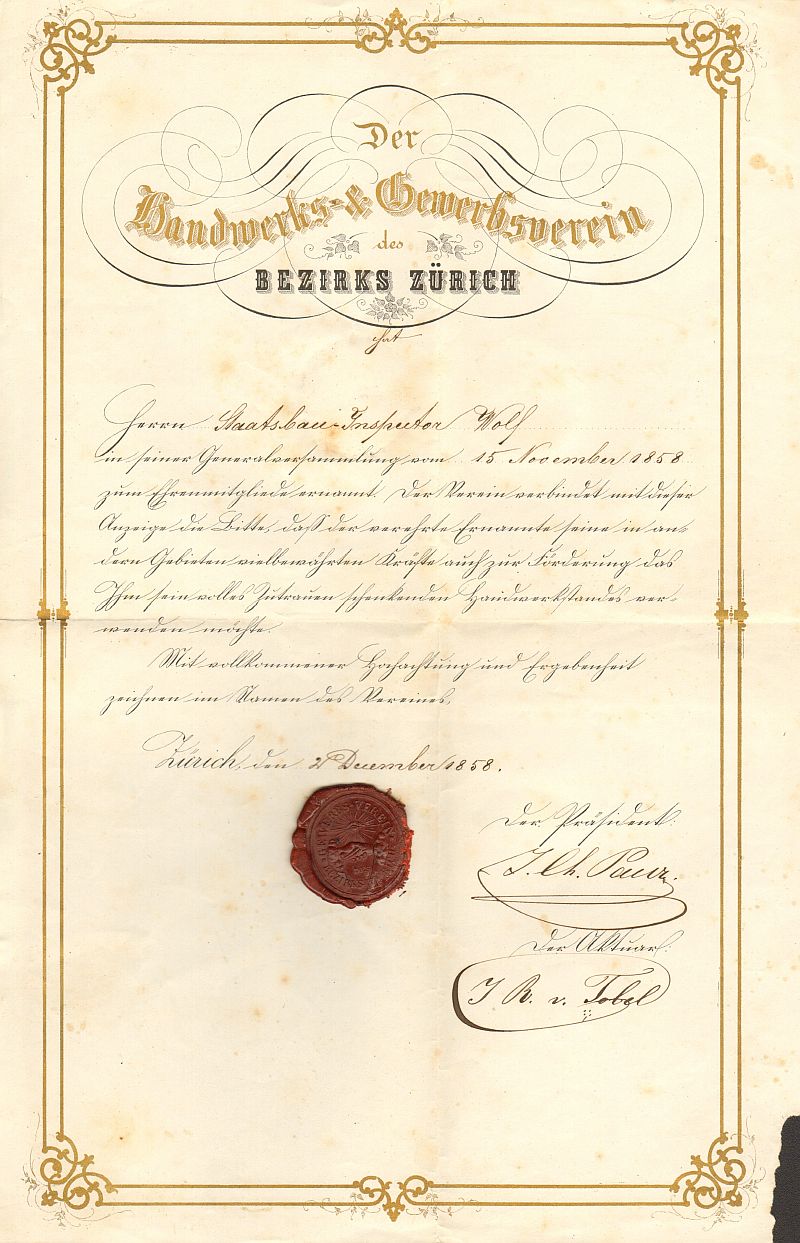 Der
Handwerks- & Gewerbsverein
des
BEZIRKS ZÜRICH
hat
Herrn Staatsbau-Inspector Wolf
in seiner Generalversammlung vom 15 November 1858
zum Ehrenmitgliede ernannt. Der Verein verbindet mit dieser
Anzeige die Bitte, daß der verehrte Ernannte seine in an-
dern Gebieten vielbewährten Kräfte auch zur Förderung des
Ihm sein volles Zutrauen schenkenden Handwerkstandes ver-
wenden möchte.
Mit vollkommener Hochachtung und Ergebenheit
zeichnen im Namen des Vereines,
Zürich, den 2 December 1858.
Der Präsident:
J. Ch.
Der Aktuar:
J R. v. Tobel